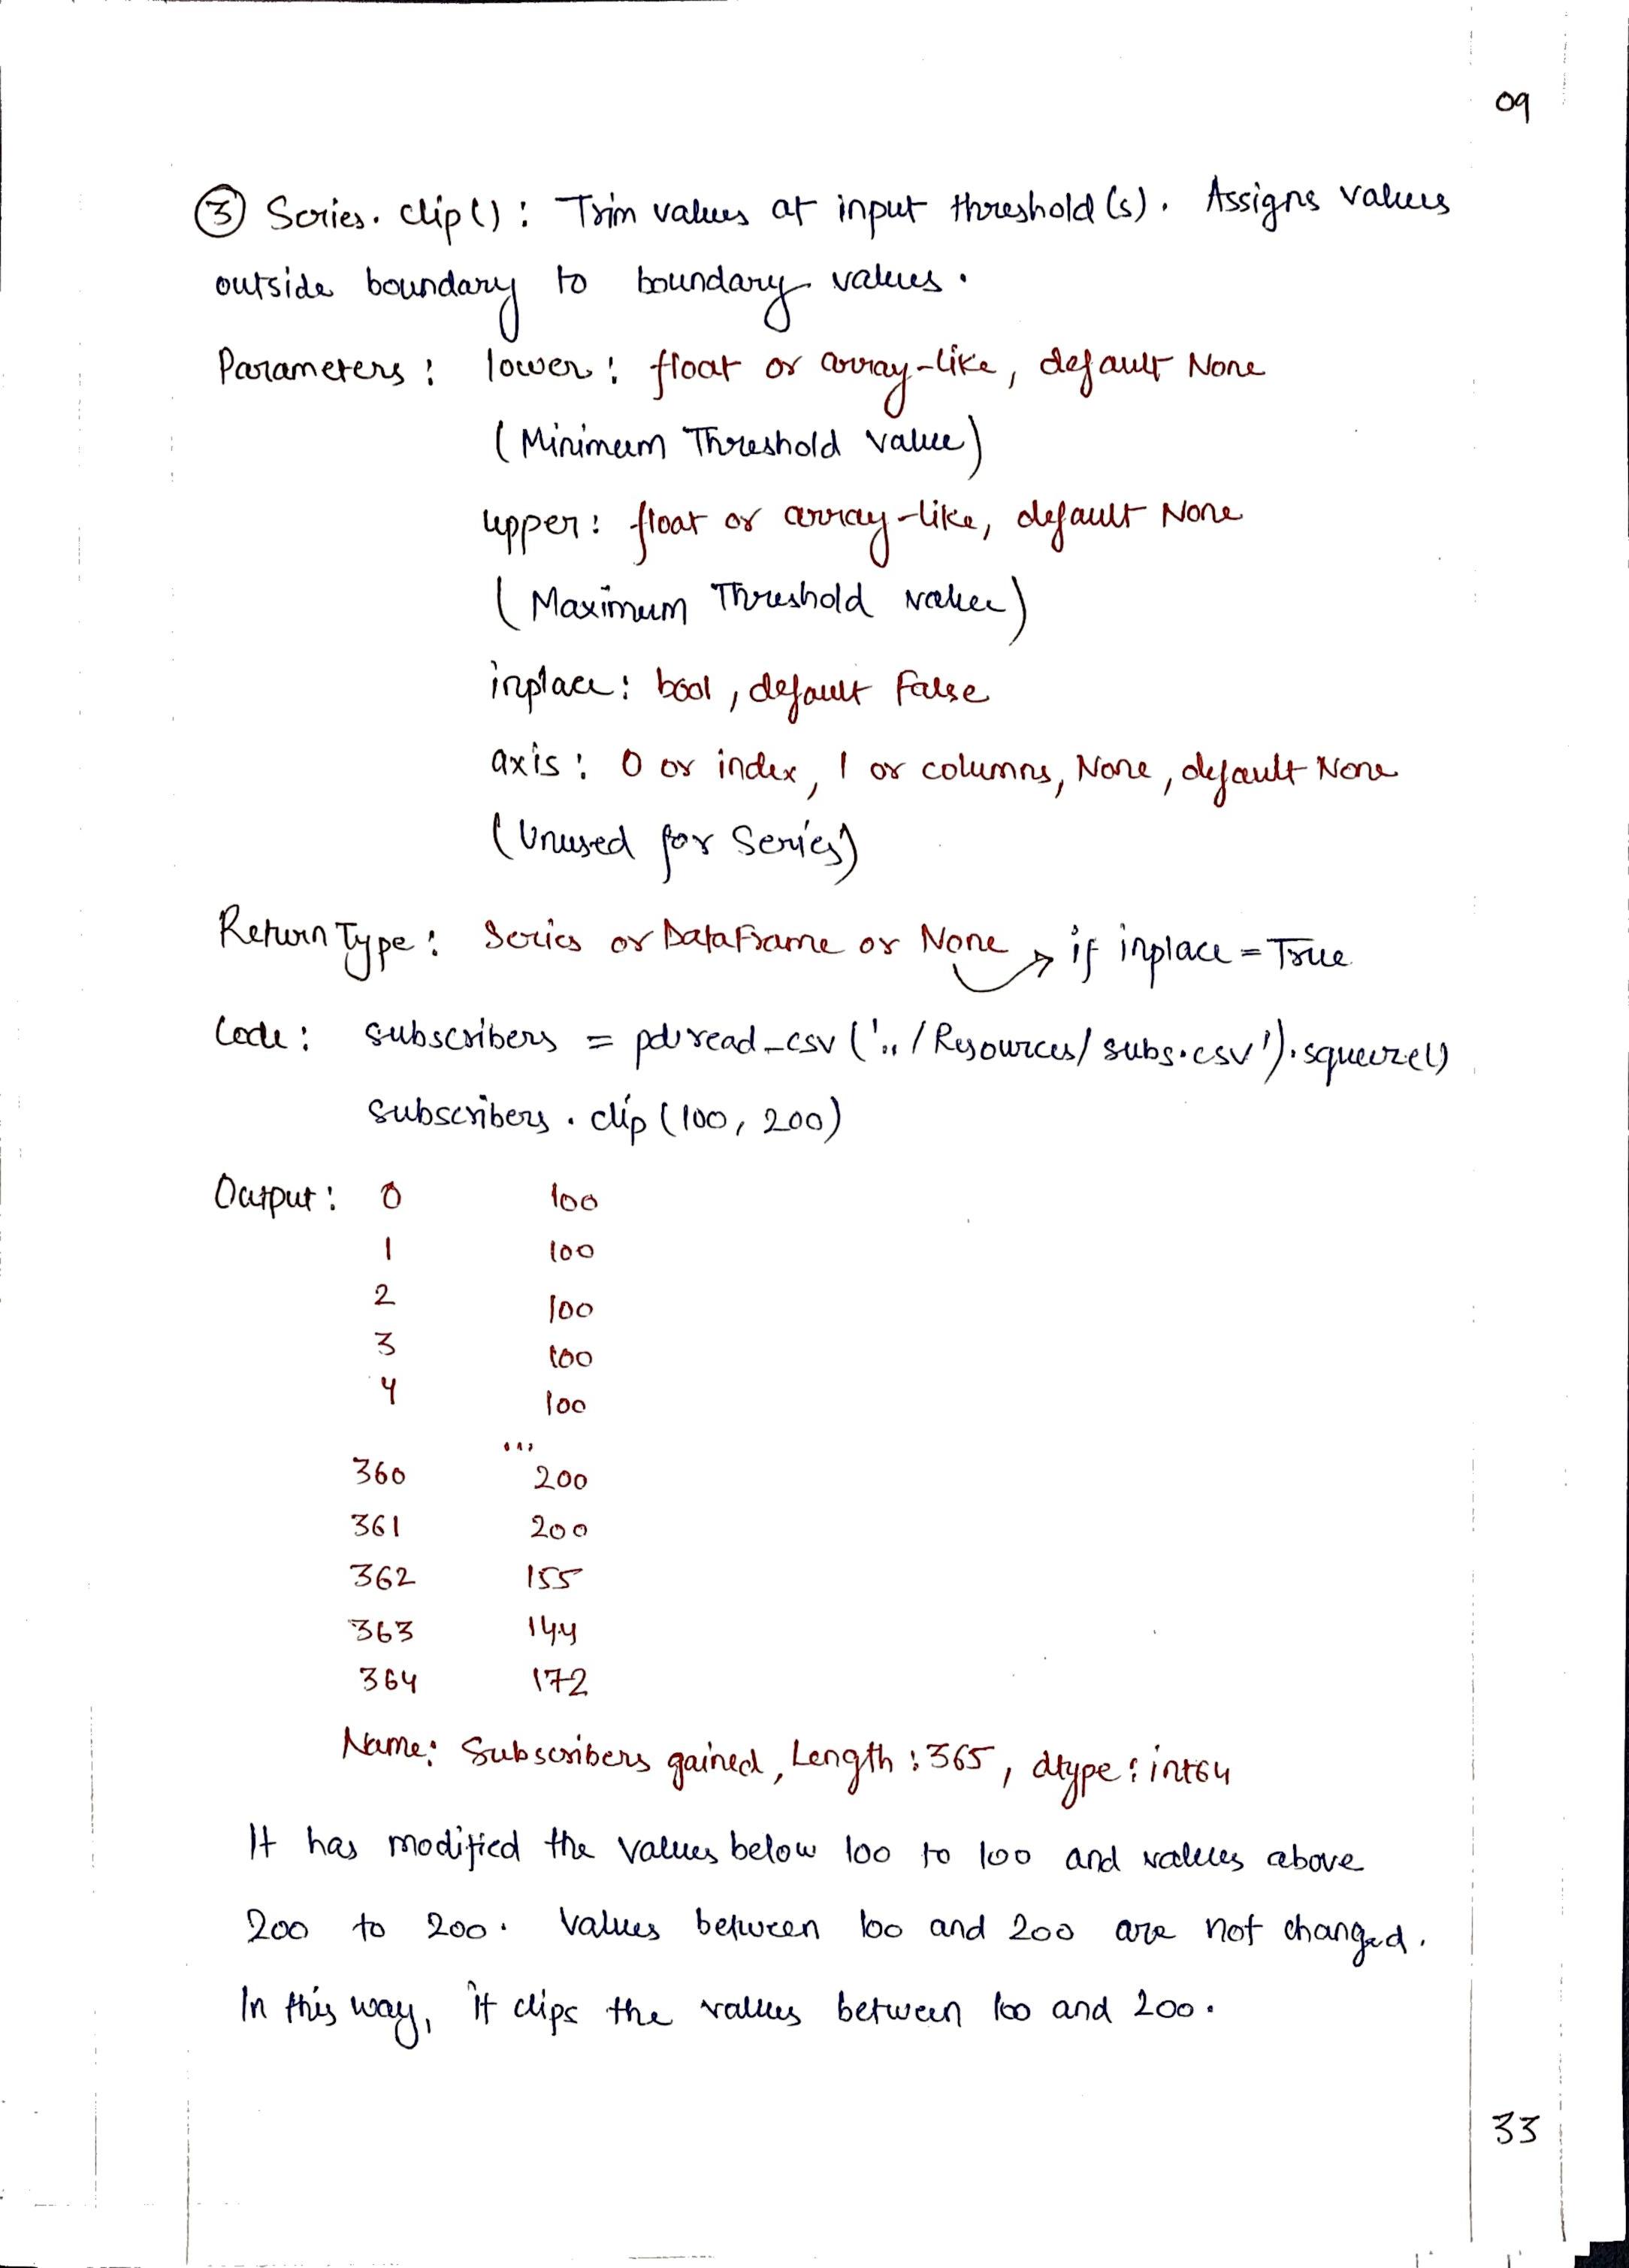 09
③ Series.clip(): Trim values at input threshold(s). Assigns values
outside boundary to boundary values.
Parameters: lower: float or array-like, default None
(Minimum Threshold value)
upper: float or array-like, default None
(Maximum Threshold value)
inplace: bool, default False
axis: 0 or index, 1 or columns, None, default None
(Unused for Series)
Return Type: Series or DataFrame or None → if inplace = True
Code: subscribers = pd.read_csv('../Resources/subs.csv').squeeze()
subscribers.clip(100, 200)
Output: 0 100
1 100
2 100
3 100
4 100
...
360 200
361 200
362 155
363 144
364 172
Name: Subscribers gained, Length: 365, dtype: int64
It has modified the values below 100 to 100 and values above
200 to 200. Values between 100 and 200 are not changed.
In this way, it clips the values between 100 and 200.
33